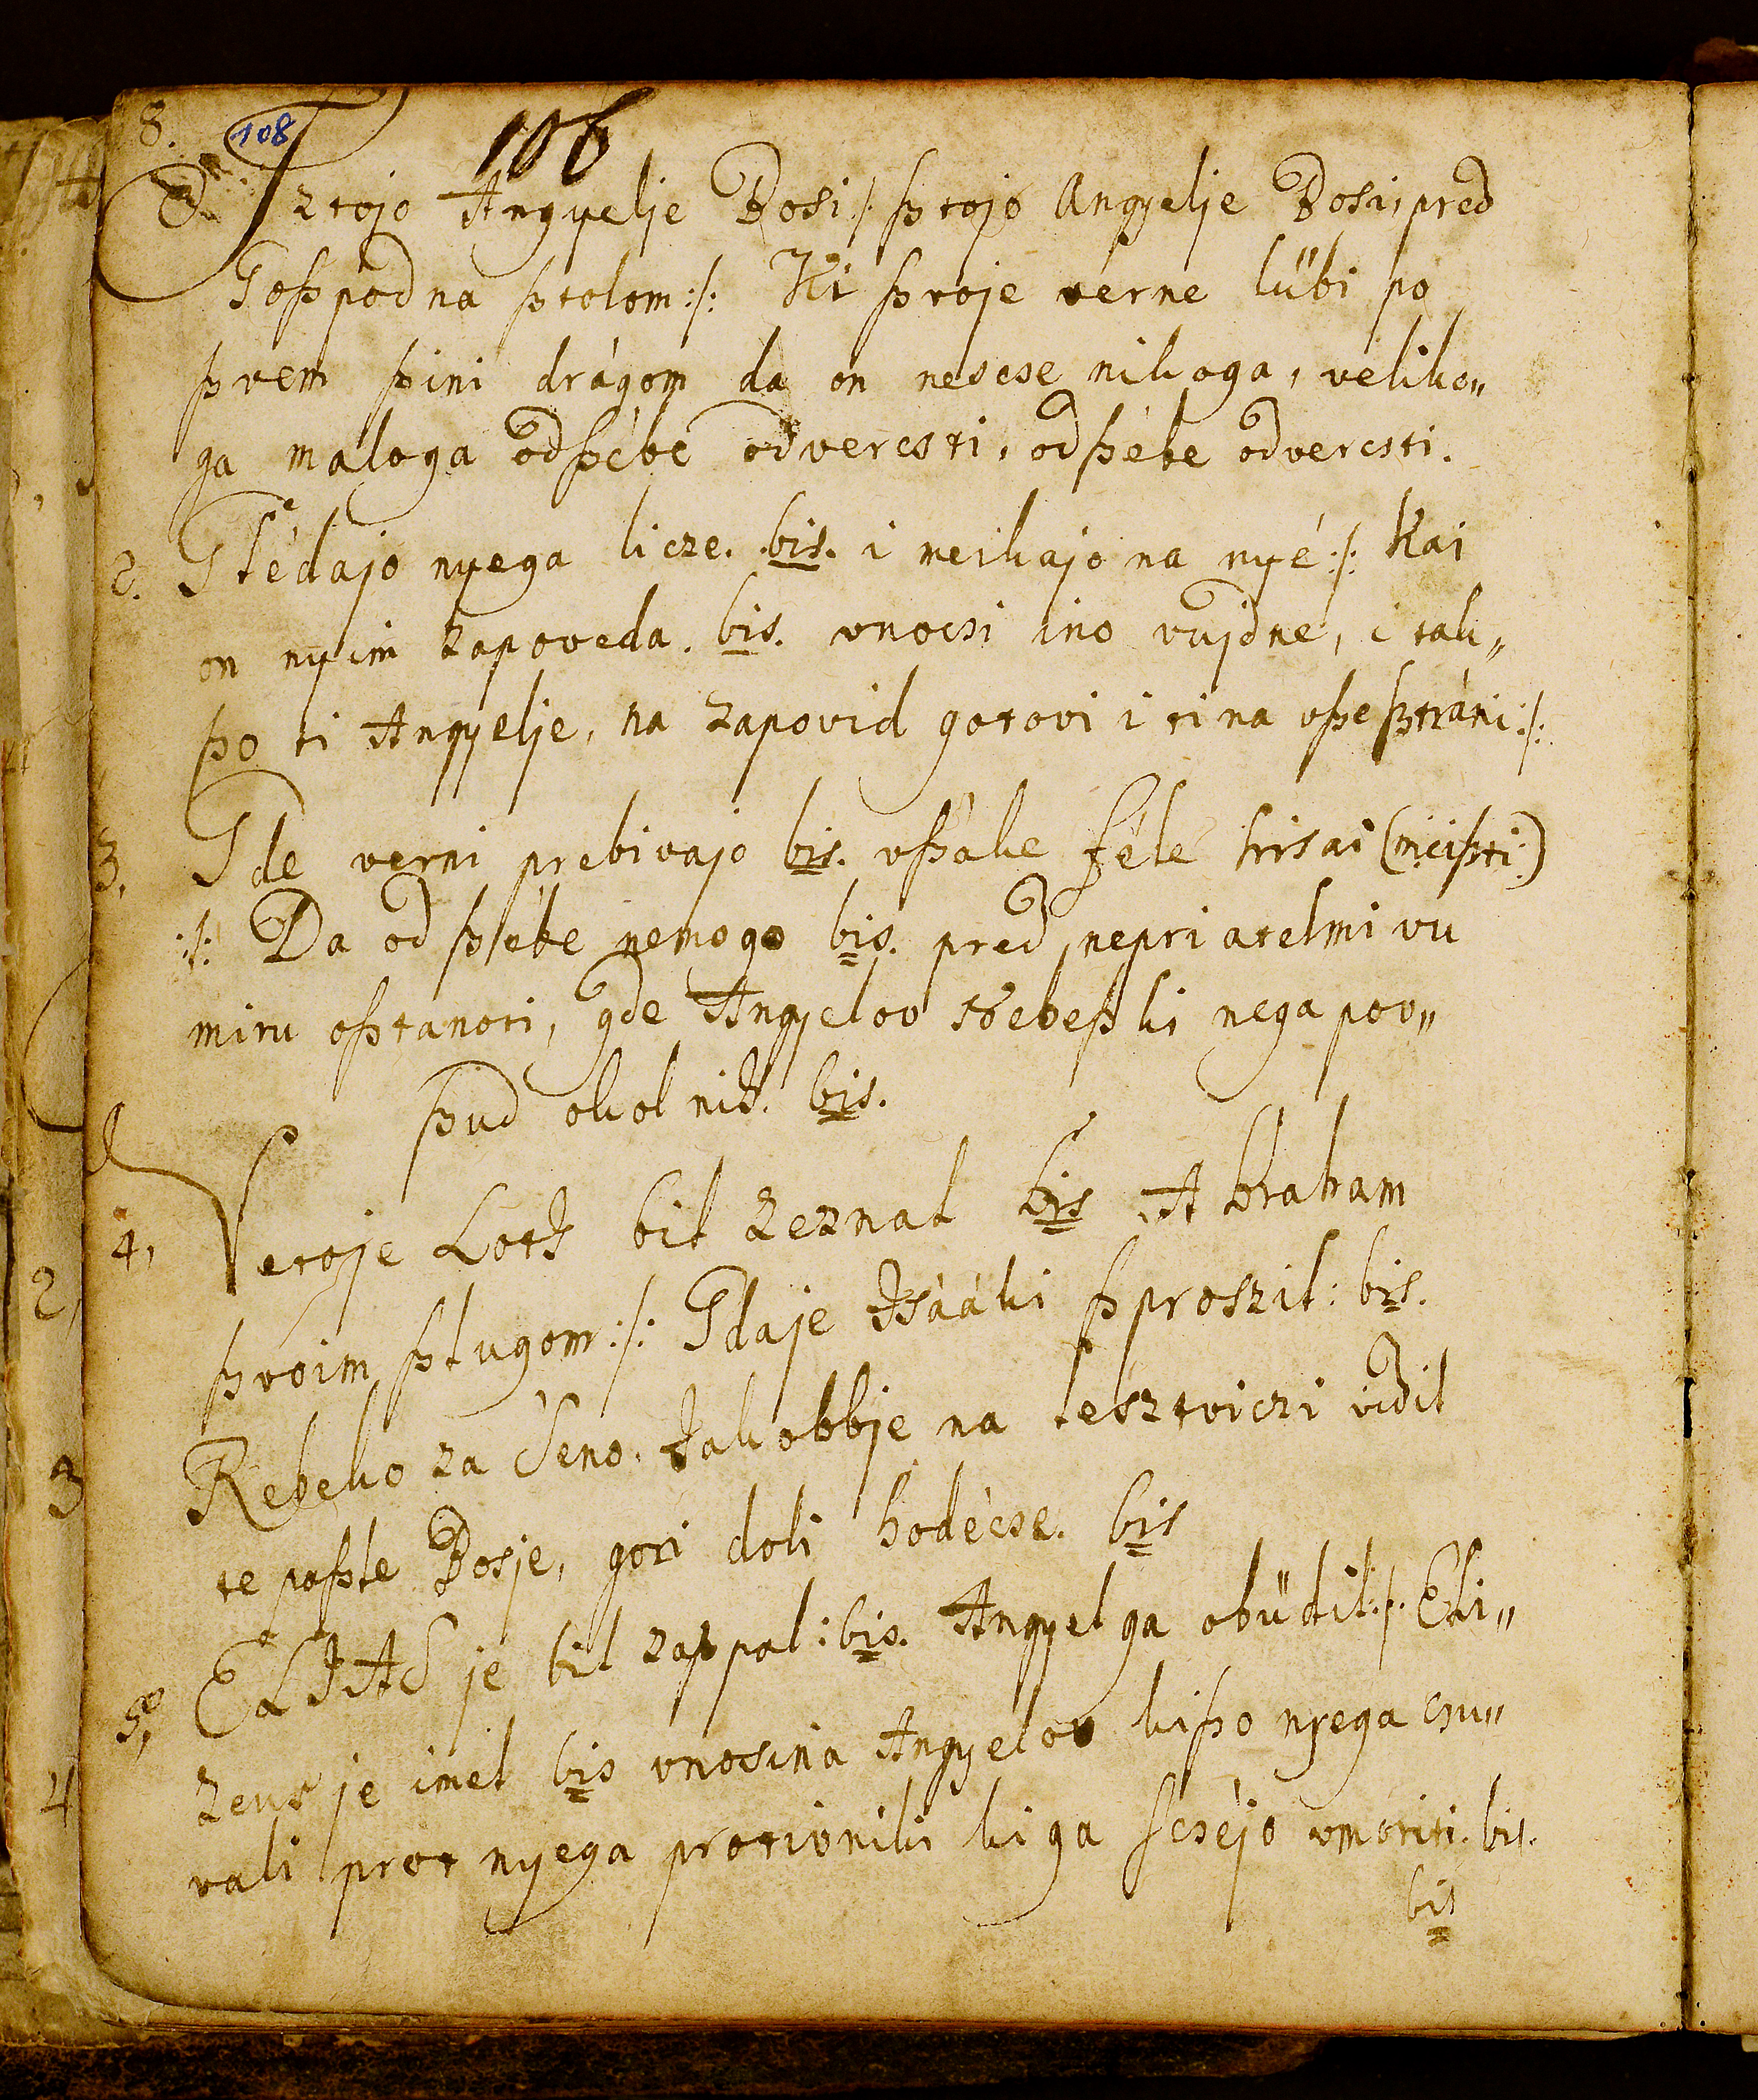 8. 108 106
Sztojo Angyelje Bosi :/: ßtojo Angyelje Bosi, pred
Goßpodna ßtolom :/: Ki ßvoje verne lübi po
ßvem ßini drágom da on nescse nikoga, veliko„
ga maloga odßébe odvercsti, odßébe odvercsti.
2. Glédajo nyega licze. bis. i merkajo na nyé :/: Kai
on nyim zapoveda. bis. vnocsi ino vujdne, i tak„
ßo ti Angyelje, na zapovid gotovi i ti na vße ßtráni :/:
3. Gde verni prebivajo bis. vßáke féle hisai (mißti)
:/: Da od ßébe nemogo bis. pred nepriatelmi vu
miru oßtanoti, gde Angyelov Nebeßki nega pov„
ßud okol nih. bis.
4. Vetoje Loth bil zeznal bis Abraham
ßvoim ßlugom :/: Gdaje Isááki ßproszil : bis.
Rebeko za Seno. Jakobbje na lesztviczi vidil
te poßle Bosje, gori doli hodécse. bis
5. ELIAS je bil zaßpal : bis. Angyel ga obüdil :/: Eli„
zeus je imel bis vnosina Angyelov kißo nyega csu„
vali prot nyega protivniki ki ga scséjo vmoriti. bis.
bis